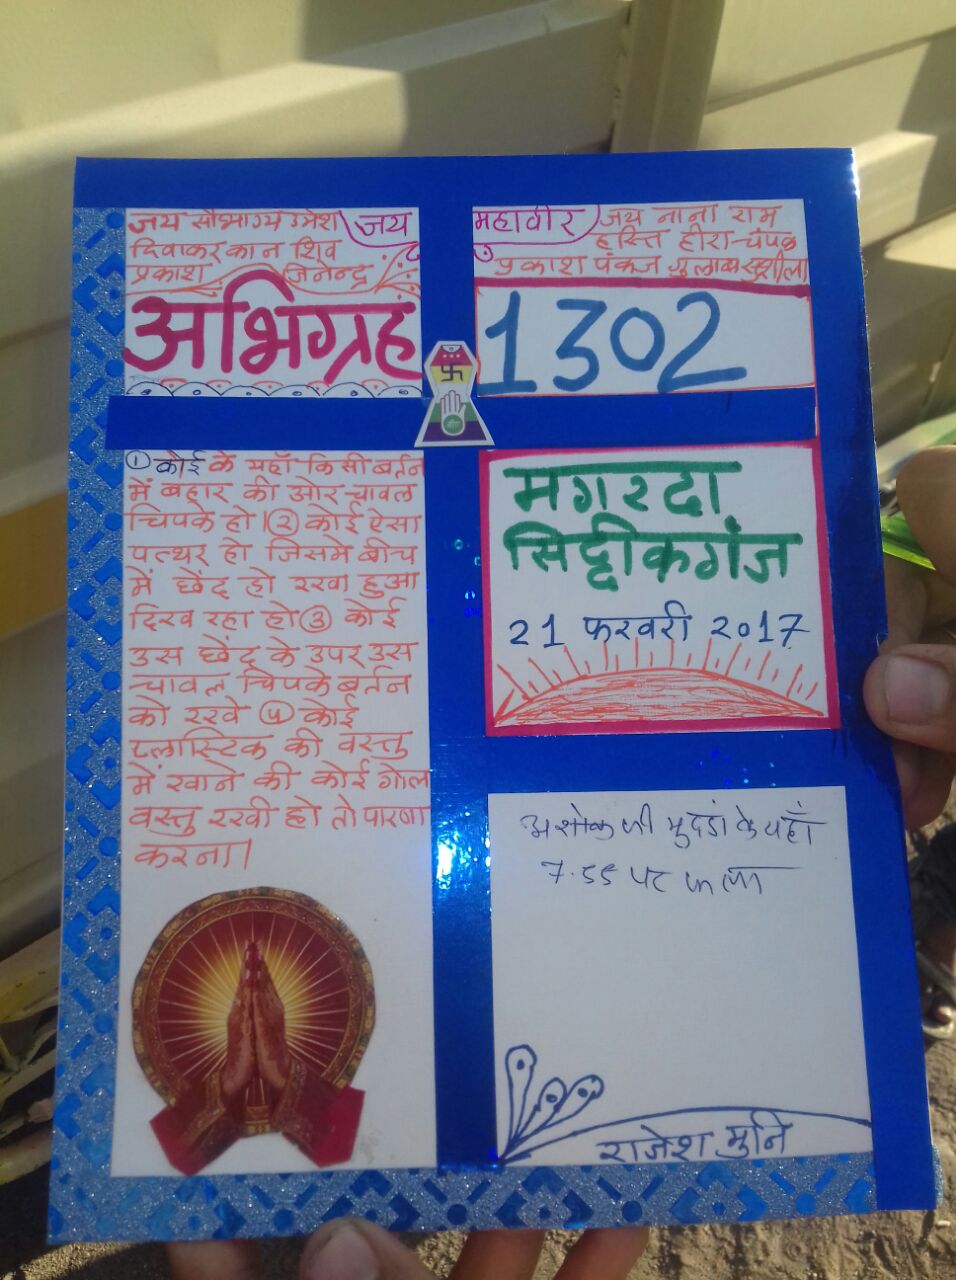 जय सौभाग्य उमेश
दिवाकर कान शिव
प्रकाश जिनेन्द्र
जय महावीर
जय नाना राम
हस्ति हीरा चंपक
प्रकाश पंकज गुलाब सुशीला
अभिग्रह
1302
① कोई के यहाँ किसी बर्तन
में बहार की ओर चावल
चिपके हो। ② कोई ऐसा
पत्थर हो जिसमे बीच
में छेंद हो रखा हुआ
दिख रहा हो ③ कोई
उस छेंद के उपर उस
चावल चिपके बर्तन
को रखे ④ कोई
प्लास्टिक की वस्तु
में खाने की कोई गोल
वस्तु रखी हो तो पारणा
करना।
मगरदा
सिद्दीकगंज
21 फरवरी 2017
अशोक जी मुदंडा के यहाँ
7.55 पर फला
राजेश मुनि